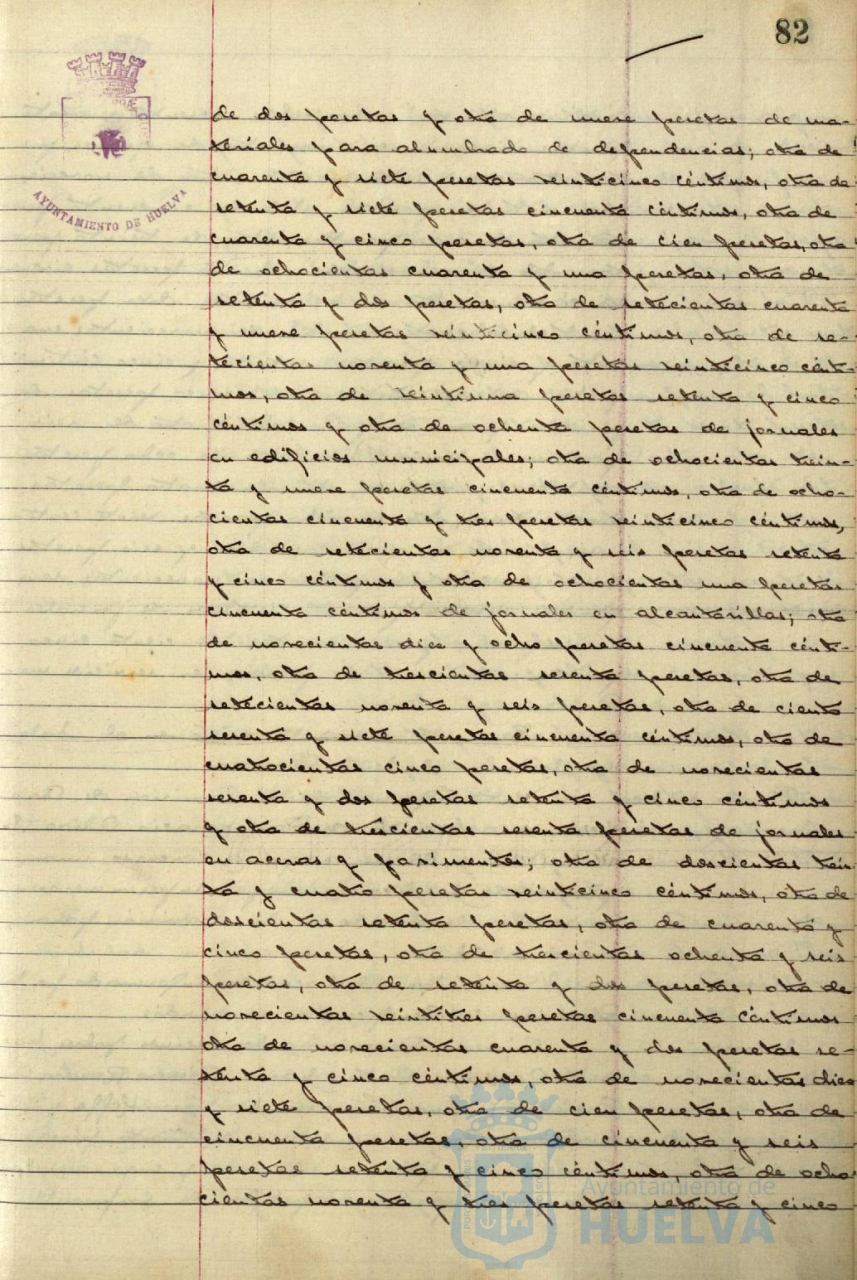 82
AYUNTAMIENTO DE HUELVA
de dos pesetas y otra de nueve pesetas de ma-
teriales para alumbrado de dependencias; otra de
cuarenta y siete pesetas veinticinco céntimos, otra de
setenta y siete pesetas cincuenta céntimos, otra de
cuarenta y cinco pesetas, otra de cien pesetas, otra
de ochocientas cuarenta y una pesetas, otra de
setenta y dos pesetas, otra de setecientas cuarenta
y nueve pesetas veinticinco céntimos, otra de se-
tecientas noventa y una pesetas veinticinco cénti-
mos, otra de veintiuna pesetas setenta y cinco
céntimos y otra de ochenta pesetas de jornales
en edificios municipales; otra de ochocientas trein-
ta y nueve pesetas cincuenta céntimos, otra de ocho-
cientas cincuenta y tres pesetas veinticinco céntimos,
otra de setecientas noventa y seis pesetas setenta
y cinco céntimos y otra de ochocientas una pesetas
cincuenta céntimos de jornales en alcantarillas; otra
de novecientas diez y ocho pesetas cincuenta cénti-
mos, otra de trescientas sesenta pesetas, otra de
setecientas noventa y seis pesetas, otra de ciento
sesenta y siete pesetas cincuenta céntimos, otra de
cuatrocientas cinco pesetas, otra de novecientas
sesenta y dos pesetas setenta y cinco céntimos
y otra de trescientas sesenta pesetas de jornales
en aceras y pavimentos; otra de doscientas trein-
ta y cuatro pesetas veinticinco céntimos, otra de
doscientas setenta pesetas, otra de cuarenta y
cinco pesetas, otra de trescientas ochenta y seis
pesetas, otra de setenta y dos pesetas, otra de
novecientas veintitres pesetas cincuenta céntimos
otra de novecientas cuarenta y dos pesetas se-
tenta y cinco céntimos, otra de novecientas diez
y siete pesetas, otra de cien pesetas, otra de
cincuenta pesetas, otra de cincuenta y seis
pesetas setenta y cinco céntimos, otra de ocho
cientas noventa y tres pesetas setenta y cinco
Ayuntamiento de
HUELVA